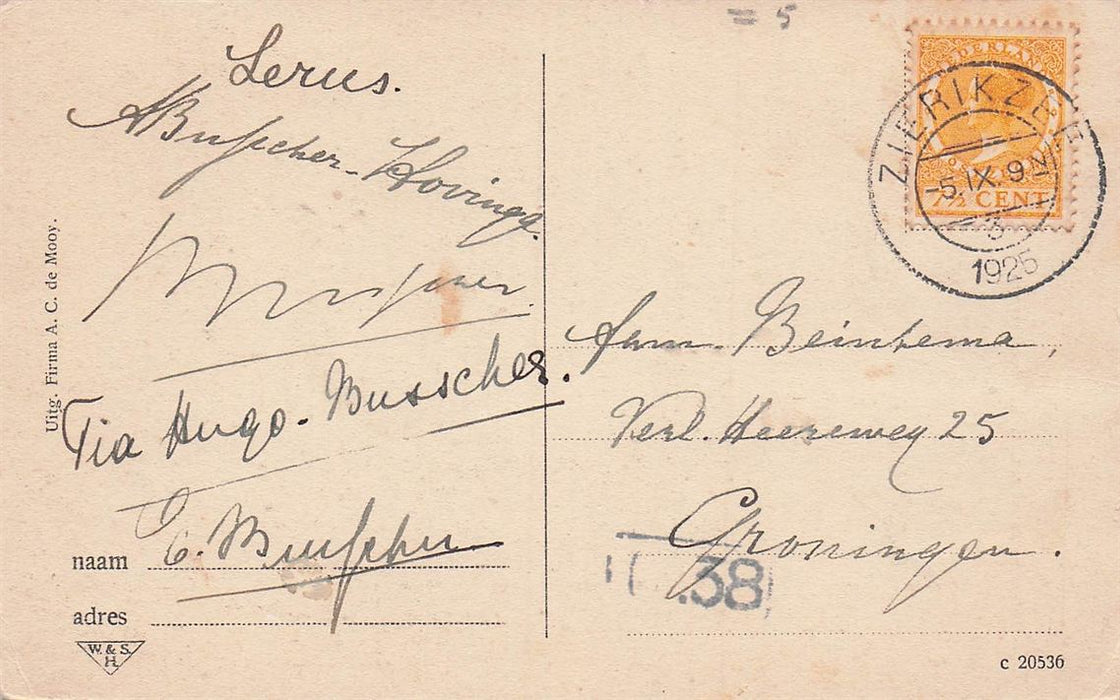 = 5
Lerus.
ABusscher-Hovinga.
Busscher.
Tia Hugo-Busscher.
E. Busscher
naam
adres
Uitg. Firma A. C. de Mooy.
W. & S.
H.
NEDERLAND
7½ CENT
ZIERIKZEE
-5.IX. 9 N.
1925
Fam. Beintema,
Verl. Heereweg 25
Groningen.
38
c 20536